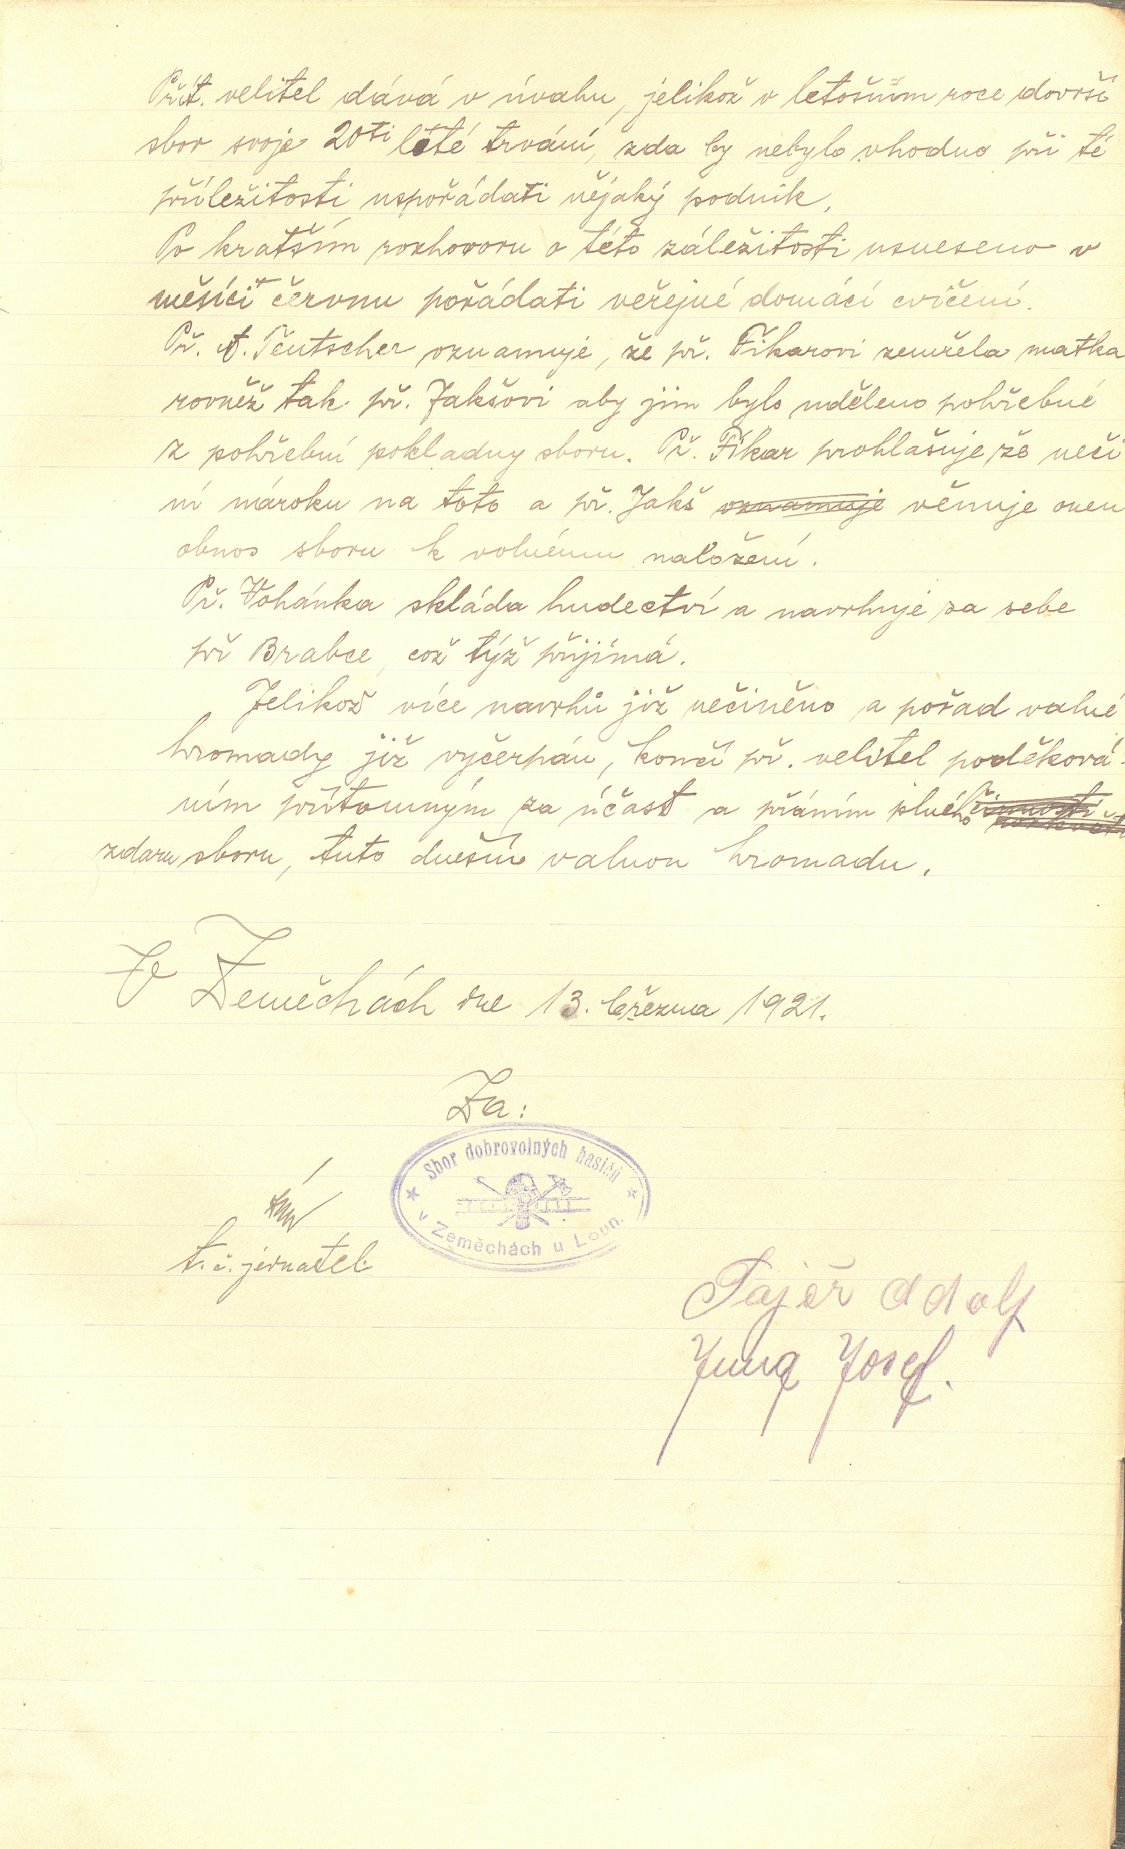 Přít. velitel dává v úvahu, jelikož v letošním roce dovrší
sbor svoje 20ti lété trvání, zda by nebylo vhodno při té
příležitosti uspořádati nějaký podnik.
Po kratším rozhovoru o této záležitosti usneseno v
měsíci červnu pořádati veřejné domácí cvičení.
Př. A. Teutscher oznamuje, že př. Fikarovi zemřela matka
rovněž tak př. Jakšovi aby jim bylo uděleno pohřebné
z pohřební pokladny sboru. Př. Fikar prohlašuje, že nečí
ní nároku na toto a př. Jakš oznamuje věnuje onen
obnos sboru k volnému naložení.
Př. Vohánka skládá hudectví a navrhuje za sebe
př Brabce, což týž přijímá.
Jelikož více navrhů již nečiněno a pořad valné
hromady již vyčerpán, končí př. velitel poděková-
ním přítomným za účast a přáním plného činnosti
zdaru sboru, tuto dnešní valnou hromadu.
V Zeměchách dne 13. března 1921.
Za:
Sbor dobrovolných hasičů
v Zeměchách u Loun.
t. č. jednatel.
Tajčř Adolf
Jung Josef.